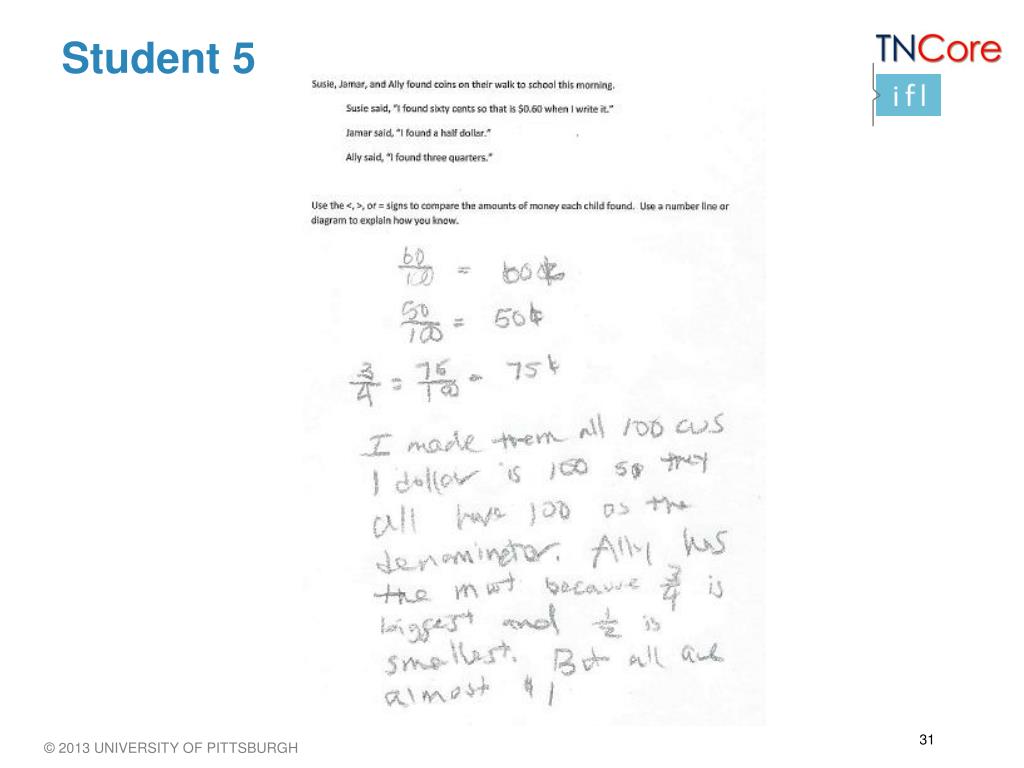 Student 5
TNCore
ifl
Susie, Jamar, and Ally found coins on their walk to school this morning.
Susie said, "I found sixty cents so that is $0.60 when I write it."
Jamar said, "I found a half dollar."
Ally said, "I found three quarters."
Use the <, >, or = signs to compare the amounts of money each child found. Use a number line or
diagram to explain how you know.
60/100 = 60¢
50/100 = 50¢
3/4 = 75/100 = 75¢
I made them all 100 cus
1 dollar is 100 so they
all have 100 as the
denominator. Ally has
the most because 3/4 is
biggest and 1/2 is
smallest. But all are
almost $1
© 2013 UNIVERSITY OF PITTSBURGH
31